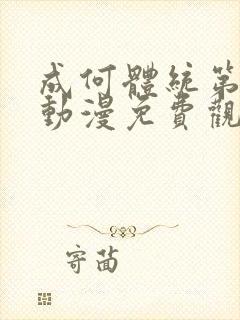 成何體統第
動漫免費觀
寄茵